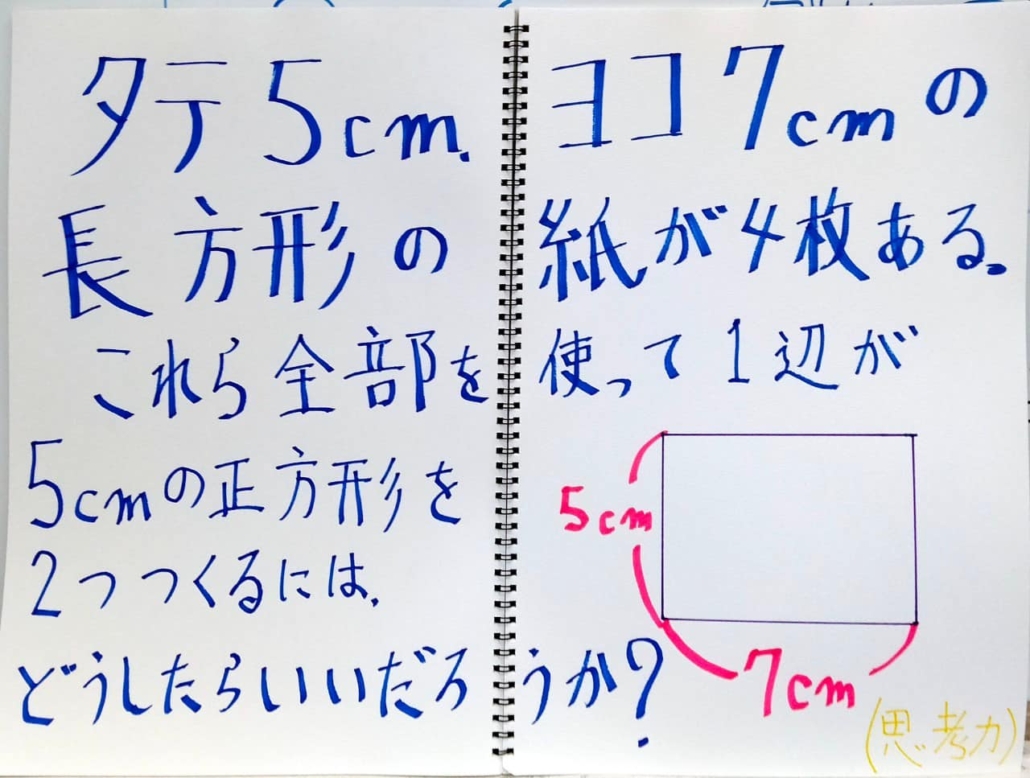 タテ5cm. ヨコ7cmの
長方形の紙が4枚ある。
これら全部を使って1辺が
5cmの正方形を
2つつくるには、
どうしたらいいだろうか?
5cm
7cm
(思考力)